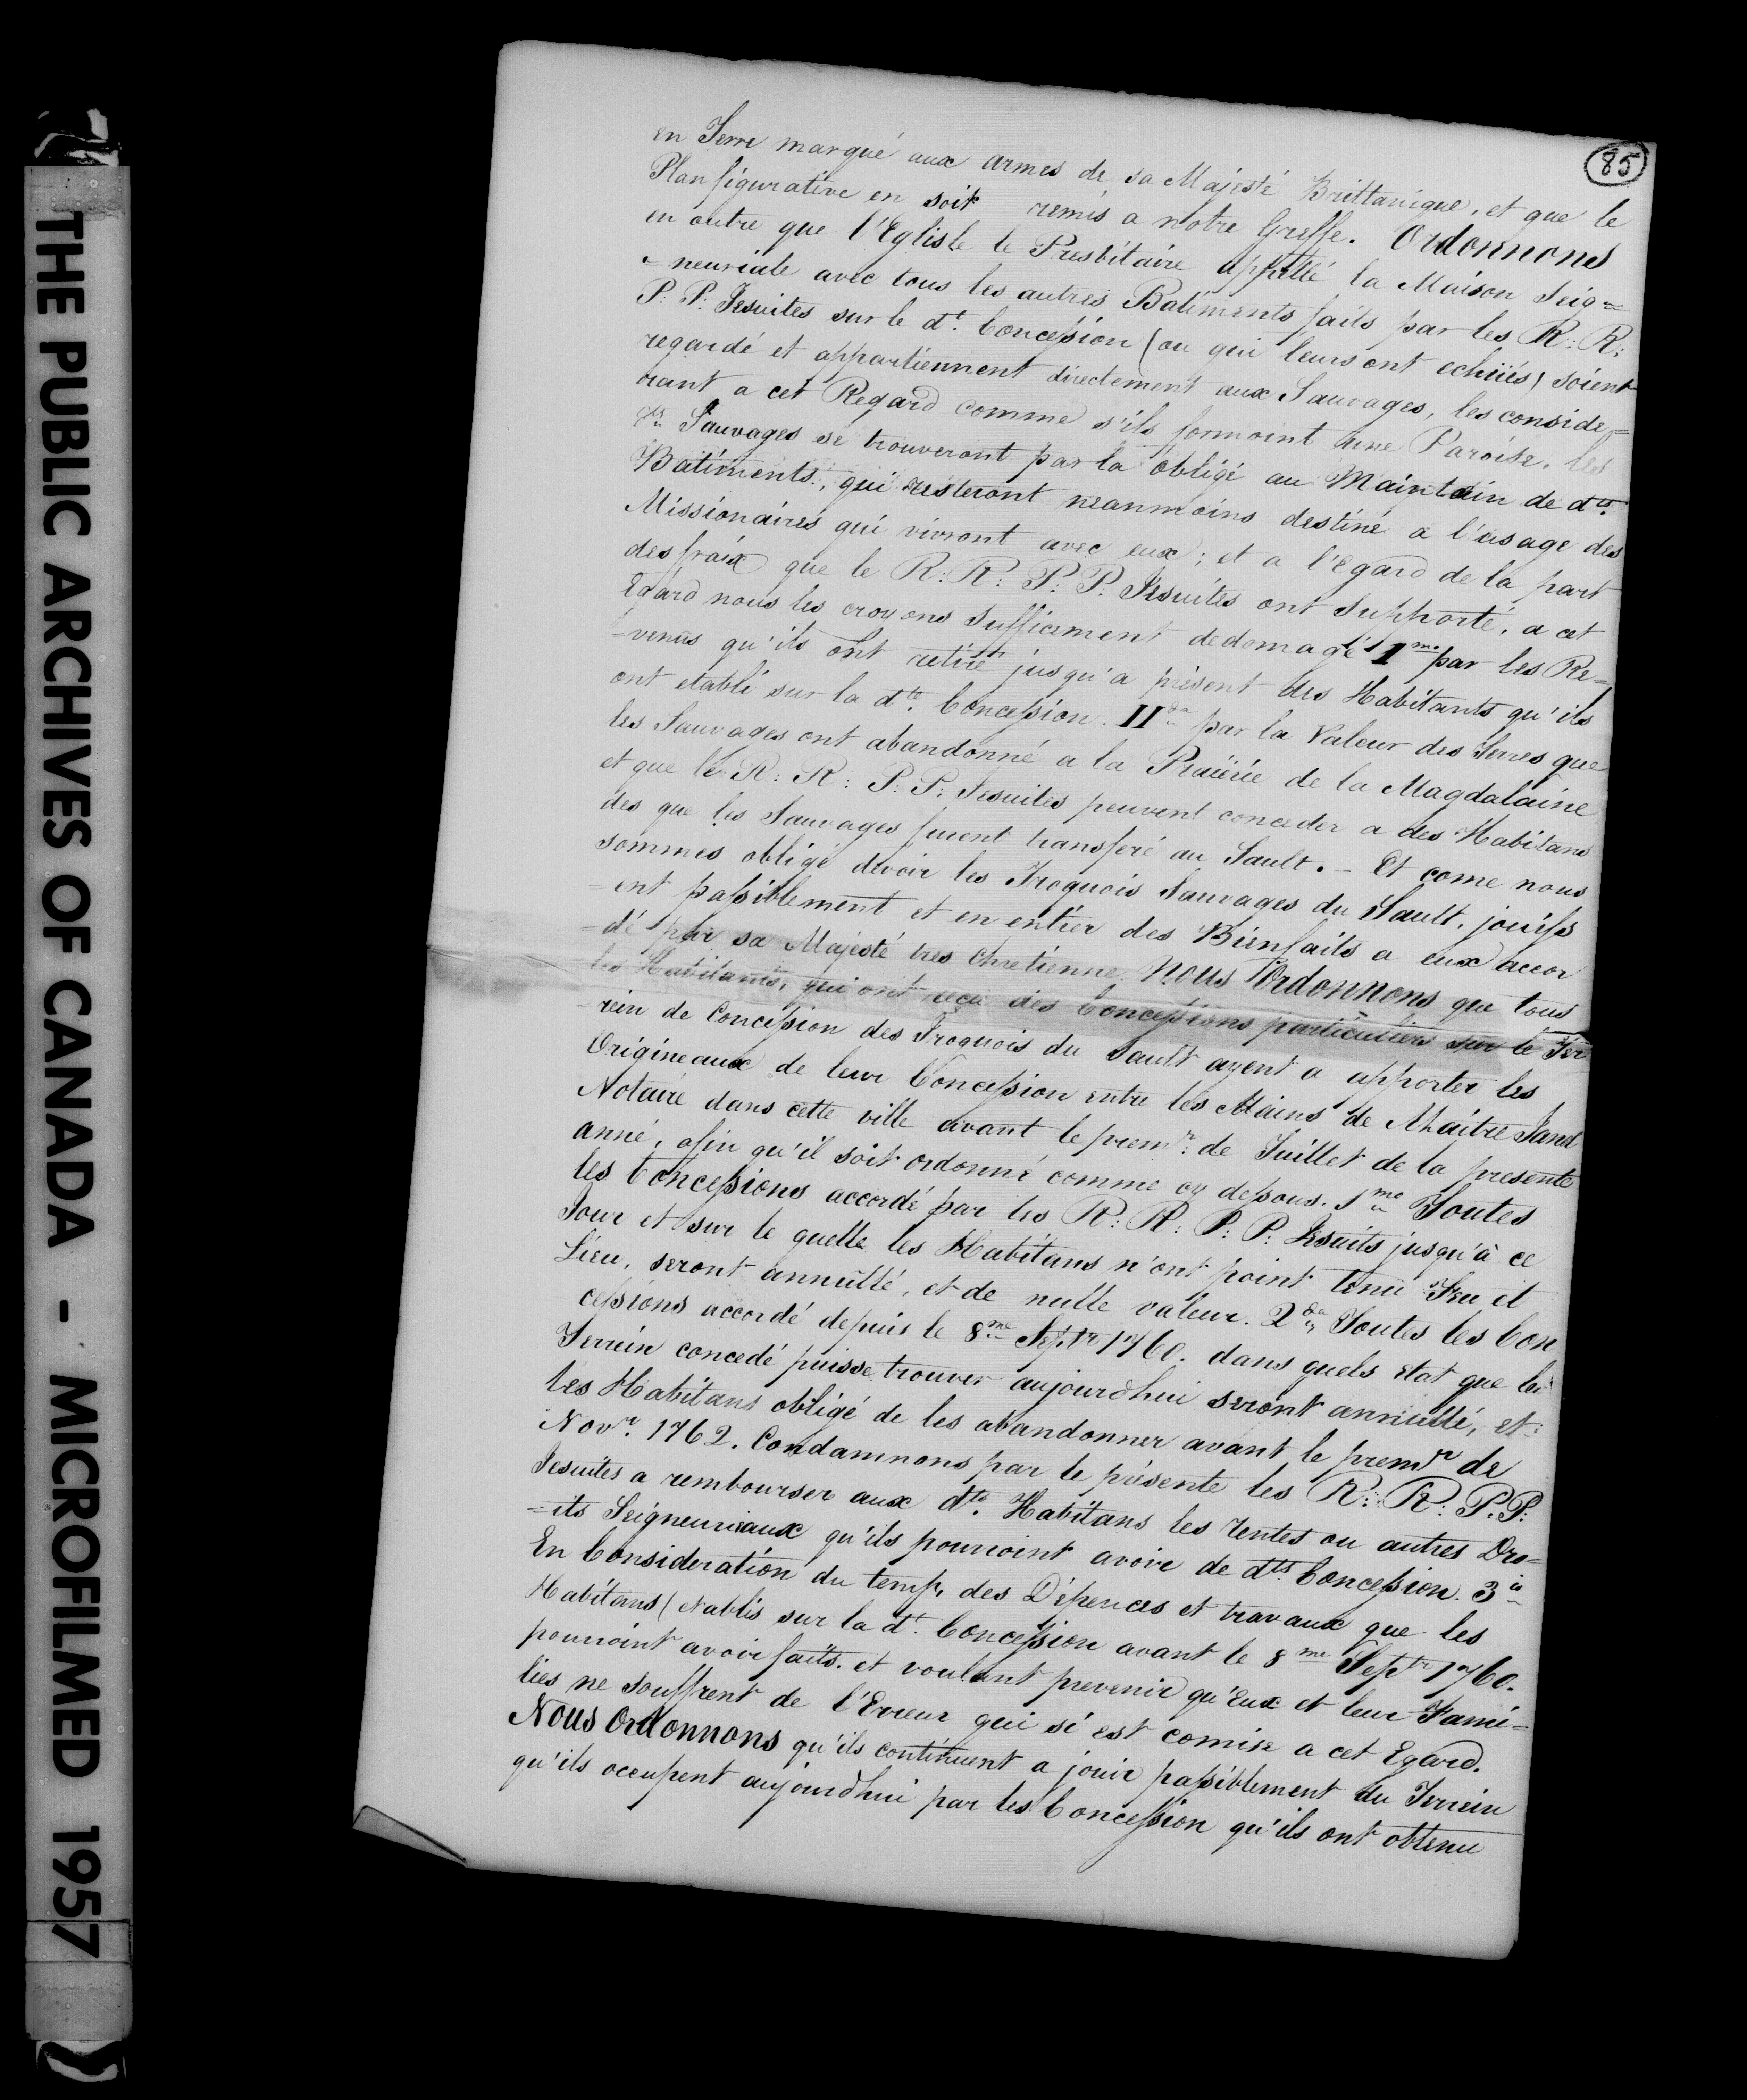 THE PUBLIC ARCHIVES OF CANADA - MICROFILMED 1957
85
en Terre marqué aux armes de sa Majesté Brittanique, et que le
Plan figurative en soit remis a notre Greffe. Ordonnons
en outre que l'Eglise le Presbitaire appellé la Maison Seig=
=neuriale avec tous les autres Batiments faits par les R: R:
P: P: Jesuites sur le dt. Concession (ou qui leurs ont echüés) soient
regardé et appartiennent directement aux Sauvages, les conside=
rant a cet Regard comme s'ils formoint une Paroise, les
dts Sauvages se trouveront par la obligé au Maintain de dts.
Batiments, qui resteront neanmoins destiné a l'usage des
Missionaires qui vivront avec eux; et a l'egard de la part
des fraix que le R: R: P: P: Jesuites ont supporté, a cet
Egard nous les croyons sufficament dedomagé 1mo par les Re=
=venus qu'ils ont retiré jusqu'a présent des Habitants qu'ils
ont etabli sur la dte. Concession. IIda par la Valeur des Terres que
les Sauvages ont abandonné a la Praiérie de la Magdalaine
et que les R: R: P: P: Jesuites peuvent conceder a des Habitans
des que les Sauvages furent transferé au Sault. - Et come nous
sommes obligé devoir les Iroquois Sauvages du Sault, jouiss
=ent passiblement et en entier des Bienfaits a eux accor
=dé par sa Majesté tres chretienne Nous Ordonnons que tous
les Habitants, qui ont reçu des Concessions particuliers sur le Ter
rein de Concession des Iroquois du Sault ayent a apporter les
Origineaux de leur Concession entre les Mains de Maitre Panet
Notaire dans cette ville avant le premr: de Juillet de la presente
anné, afin qu'il soit ordonné comme cy dessous. 1mo Toutes
les Concessions accordé par les R: R: P: P: Jesuits jusqu'à ce
Jour et sur le quelle les Habitans n'ont point tenu Feu et
Lieu, seront annullé, et de nulle valeur. 2da Toutes les Con
cessions accordé depuis le 8me Septr 1760. dans quels etat que le
Terrein concedé puisse trouver aujourdhui seront annullé, et
les Habitans obligé de les abandonner avant le premr de
Novr. 1762. Condamnons par le présente les R: R: P: P:
Jesuites a rembourser aux dts. Habitans les rentes ou autres Dro=
=its Seigneuriaux qu'ils pourroint avoir de dtes Concession. 3a
En Consideration du temps, des Dépences et travaux que les
Habitans (etablis sur la dt. Concession avant le 8me Septr 1760.
pourroint avoir faits. et voulant prevenir qu'Eux et leur Fami=
lies ne souffrent de l'Erreur qui si est comise a cet Egard.
Nous Ordonnons qu'ils continuent a jouir passiblement du Terrein
qu'ils occupent aujourdhui par les Concession qu'ils ont obtenu